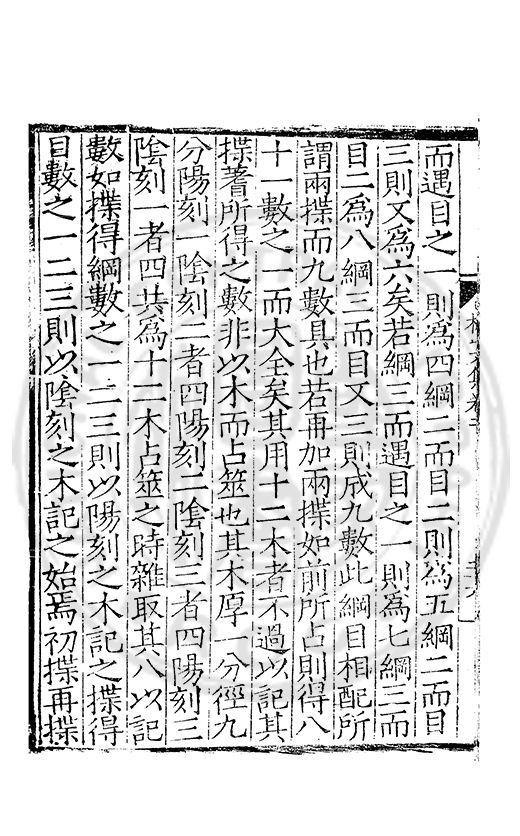 而遇目之一則爲四綱二而目二則爲五綱二而目
三則又爲六矣若綱三而遇目之一則爲七綱三而
目二爲八綱三而目又三則成九數此綱目相配所
謂兩揲而九數具也若再加兩揲如前所占則得八
十一數之一而大全矣其用十二木者不過以記其
揲蓍所得之數非以木而占筮也其木厚一分徑九
分陽刻一陰刻二者四陽刻二陰刻三者四陽刻三
陰刻一者四共爲十二木占筮之時雜取其八以記
數如揲得綱數之一二三則以陽刻之木記之揲得
目數之一二三則以陰刻之木記之始焉初揲再揲